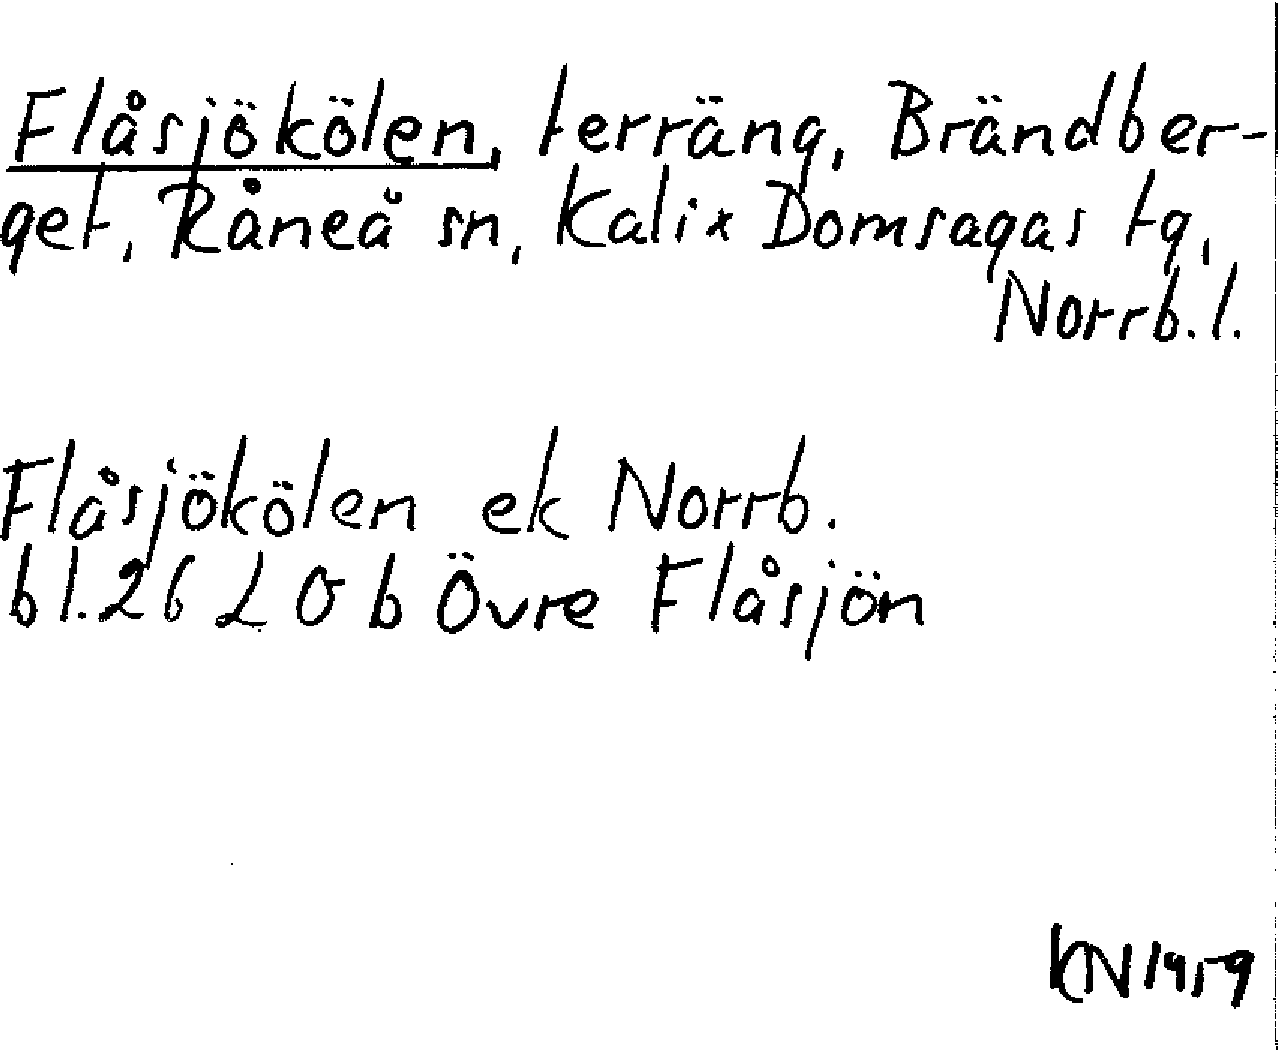 Flåsjökölen, terräng, Brändber-
get, Råneå sn, Kalix Domsagas tg,
Norrb. l.
Flåsjökölen ek Norrb.
bl. 26 L 0 b Övre Flåsjön
KN 1959